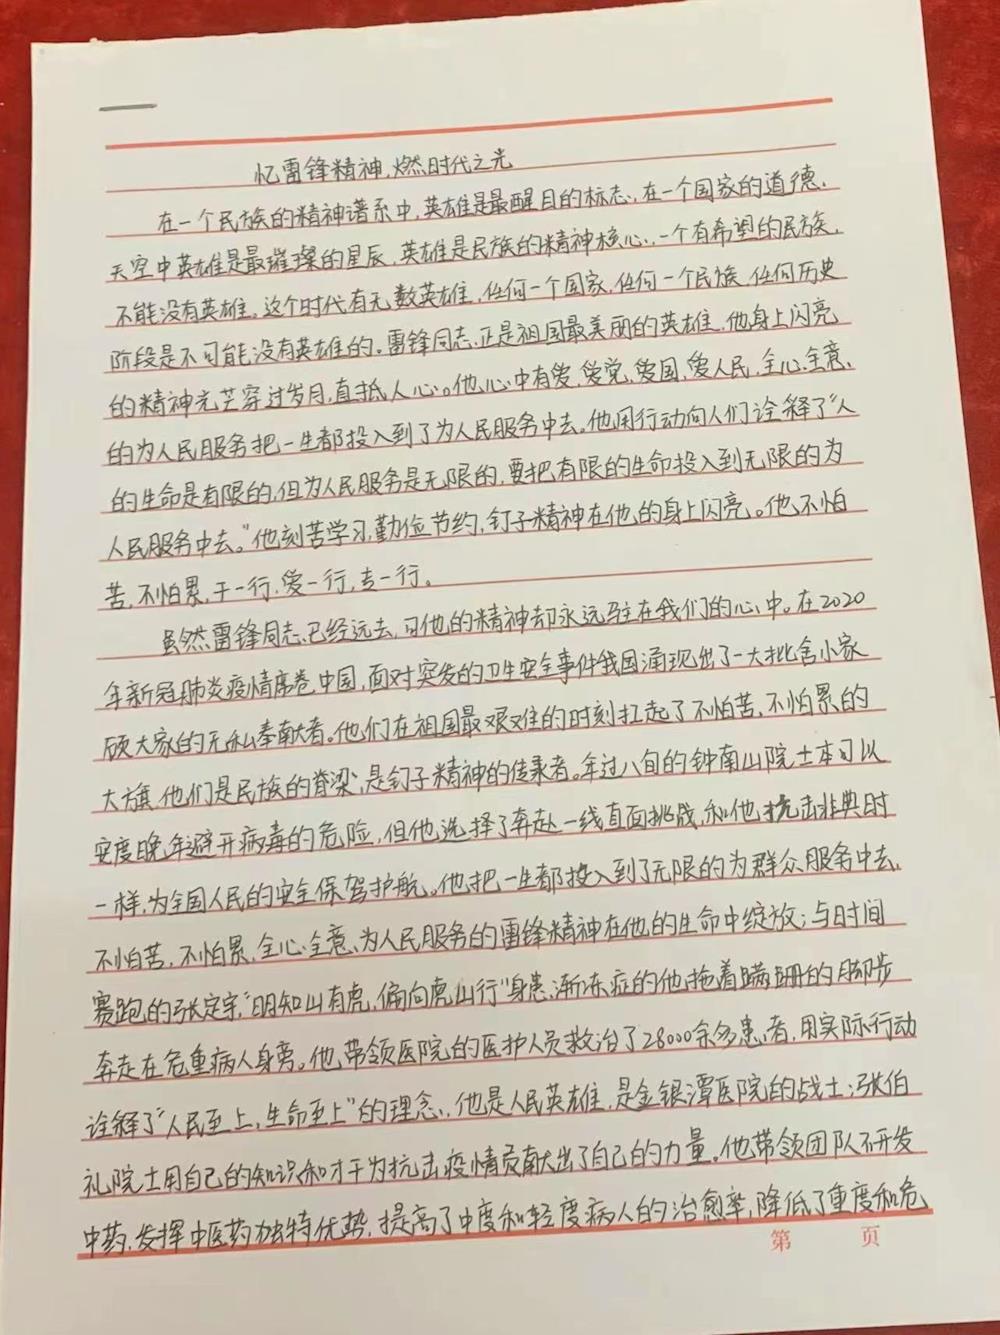 忆雷锋精神,燃时代之光
在一个民族的精神谱系中,英雄是最醒目的标志,在一个国家的道德.
天空中英雄是最璀璨的星辰,英雄是民族的精神核心,一个有希望的民族,
不能没有英雄。这个时代有无数英雄,任何一个国家,任何一个民族,任何历史
阶段是不可能没有英雄的。雷锋同志正是祖国最美丽的英雄,他身上闪亮
的精神光芒穿过岁月,直抵人心。他心中有爱,爱党,爱国,爱人民,全心全意.
的为人民服务把一生都投入到了为人民服务中去。他用行动向人们诠释了"人
的生命是有限的,但为人民服务是无限的,要把有限的生命投入到无限的为
人民服务中去。"他刻苦学习,勤俭节约,钉子精神在他的身上闪亮。他不怕
苦,不怕累,干一行,爱一行,专一行。
虽然雷锋同志已经远去,可他的精神却永远驻在我们的心中。在2020
年新冠肺炎疫情席卷中国,面对突发的卫生安全事件我国涌现出了一大批舍小家
顾大家的无私奉献者。他们在祖国最艰难的时刻扛起了不怕苦,不怕累的
大旗,他们是民族的脊梁,是钉子精神的传承者。年过八旬的钟南山院士本可以
安度晚年避开病毒的危险,但他选择了奔赴一线直面挑战,和他抗击非典时
一样,为全国人民的安全保驾护航。他把一生都投入到了无限的为群众服务中去,
不怕苦,不怕累,全心全意为人民服务的雷锋精神在他的生命中绽放;与时间
赛跑的张定宇,"明知山有虎,偏向虎山行"身患渐冻症的他,拖着蹒跚的脚步
奔走在危重病人身旁。他带领医院的医护人员救治了28000余多患者,用实际行动
诠释了"人民至上,生命至上"的理念,他是人民英雄,是金银潭医院的战士;张伯
礼院士用自己的知识和才干为抗击疫情贡献出了自己的力量。他带领团队不开发
中药,发挥中医药独特优势,提高了中度和轻度病人的治愈率,降低了重度和危
第 页